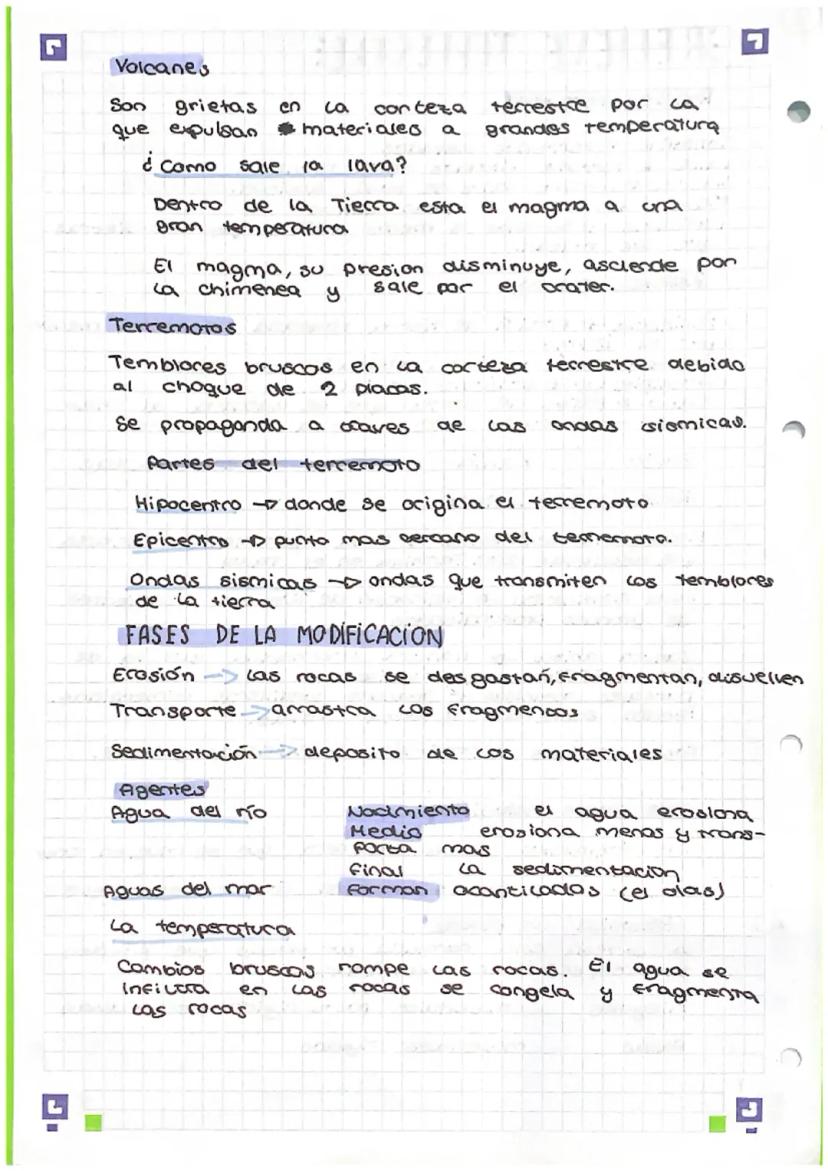 Volcanes
Son grietas en la corteza terrestre por la
que expulsan materiales a grandes temperatura
¿Como sale la lava?
Dentro de la Tierra esta el magma a una
gran temperatura
El magma, su presion disminuye, asciende por
la chimenea y sale por el crater.
Terremotos
Temblores bruscos en la corteza terrestre debido
al choque de 2 placas.
Se propaganda a traves de las ondas sismicas.
Partes del terremoto
Hipocentro → donde se origina el terremoto
Epicentro → punto mas cercano del terremoto.
Ondas sismicas → ondas que transmiten los temblores
de la tierra
FASES DE LA MODIFICACIÓN
Erosión → las rocas se desgastan, fragmentan, disuelven
Transporte → arrastra los fragmentos
Sedimentación → deposito de los materiales
Agentes
Agua del río Nacimiento el agua erosiona
Medio erosiona menos y trans-
porta mas
final la sedimentacion
Aguas del mar Forman acantilados (el olas)
La temperatura
Cambios bruscos rompe las rocas. El agua se
infiltra en las rocas se congela y fragmenta
las rocas